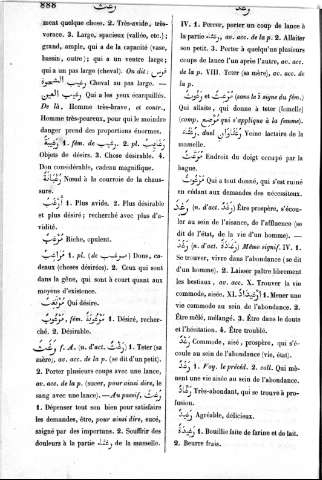 888 رغث رغد
ment quelque chose. 2. Très-avide, très-
vorace. 3. Large, spacieux (vallée, etc.);
grand, ample, qui a de la capacité (vase,
bassin, outre); qui a un ventre large;
qui a un pas large (cheval). On dit: فرس
رغيب الشحوة Cheval au pas large. —
رغيب العين Qui a les yeux écarquillés.
De là, Homme très-brave, et contr.,
Homme très-peureux, pour qui le moindre
danger prend des proportions énormes.
رَغِيبَةٌ 1. fém. de رغيب. 2. pl. رَغَائِبُ
Objets de désirs. 3. Chose désirable. 4.
Don considérable, cadeau magnifique.
رُغْبَانَةٌ Nœud à la courroie de la chaus-
sure.
أَرْغَبُ 1. Plus avide. 2. Plus désirable
et plus désiré; recherché avec plus d'a-
vidité.
مُرْغِبٌ Riche, opulent.
مَرَاغِبُ 1. pl. (de مرغب) Dons, ca-
deaux (choses désirées). 2. Ceux qui sont
dans la gêne, qui sont à court quant aux
moyens d'existence.
Qui désire.
مَرْغُوبٌ, fém. مَرْغُوبَةٌ 1. Désiré, recher-
ché. 2. Désirable.
رَغَثَ f. A. (n. d'act. رَغْثٌ) 1. Teter (sa
mère), av. acc. de la p. (se dit du petit).
2. Porter plusieurs coups avec une lance,
av. acc. de la p. (sucer, pour ainsi dire, le
sang avec une lance). — Au passif, رُغِثَ
1. Dépenser tout son bien pour satisfaire
les demandes, être, pour ainsi dire, sucé,
saigné par des importuns. 2. Souffrir des
douleurs à la partie رغثاء de la mamelle.
IV. 1. Percer, porter un coup de lance à
la partie رغثاء, av. acc. de la p. 2. Allaiter
son petit. 3. Porter à quelqu'un plusieurs
coups de lance l'un après l'autre, av. acc.
de la p. VIII. Teter (sa mère), av. acc. de
la p.
رَغُوثٌ et مُرْغِثٌ (sans le ة signe du fém.)
Qui allaite, qui donne à teter (femelle)
(comp. مُرْضِعٌ qui s'applique à la femme).
رُغَثَاءُ, dual رُغَثَاوَانِ Veine lactaire de la
mamelle.
Endroit du doigt occupé par la
bague.
مَرْغُوثٌ Qui a tout donné, qui s'est ruiné
en cédant aux demandes des nécessiteux.
رَغِدَ (n. d'act. رَغَدٌ) Être prospère, s'écou-
ler au sein de l'aisance, de l'affluence (se
dit de l'état, de la vie d'un homme). —
رَغُدَ (n. d'act. رَغَادَةٌ) Même signif. IV. 1.
Se trouver, vivre dans l'abondance (se dit
d'un homme). 2. Laisser paître librement
les bestiaux, av. acc. X. Trouver la vie
commode, aisée. XI. إِرْغِيدَادٌ 1. Mener une
vie commode au sein de l'abondance. 2.
Être mêlé, mélangé. 3. Être dans le doute
et l'hésitation. 4. Être troublé.
رَغْدٌ Commode, aisé, prospère, qui s'é-
coule au sein de l'abondance (vie, état).
رَغَدٌ 1. Voy. le précéd. 2. coll. Qui mè-
nent une vie aisée au sein de l'abondance.
Très-abondant, qui se trouve à pro-
fusion.
رَغِيدٌ Agréable, délicieux.
رَغِيدَةٌ 1. Bouillie faite de farine et de lait.
2. Beurre frais.